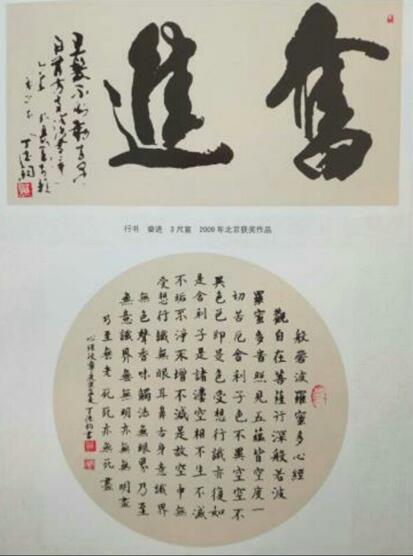 奮進
行书 奋进 3尺宣 2009年北京获奖作品
般若波羅蜜多心經
觀自在菩薩行深般若波
羅蜜多 照見五蘊皆空度一
切苦厄舍利子色不異空空不
異色色即是色受想行識亦復如
是舍利子是諸 空相不生不滅
不垢不淨不增不減是故空中無
受想行識無眼耳鼻舌身意識界
無色聲香味觸法無眼界乃至
無意識界無無明亦無無明盡
乃至無老死死亦無死盡